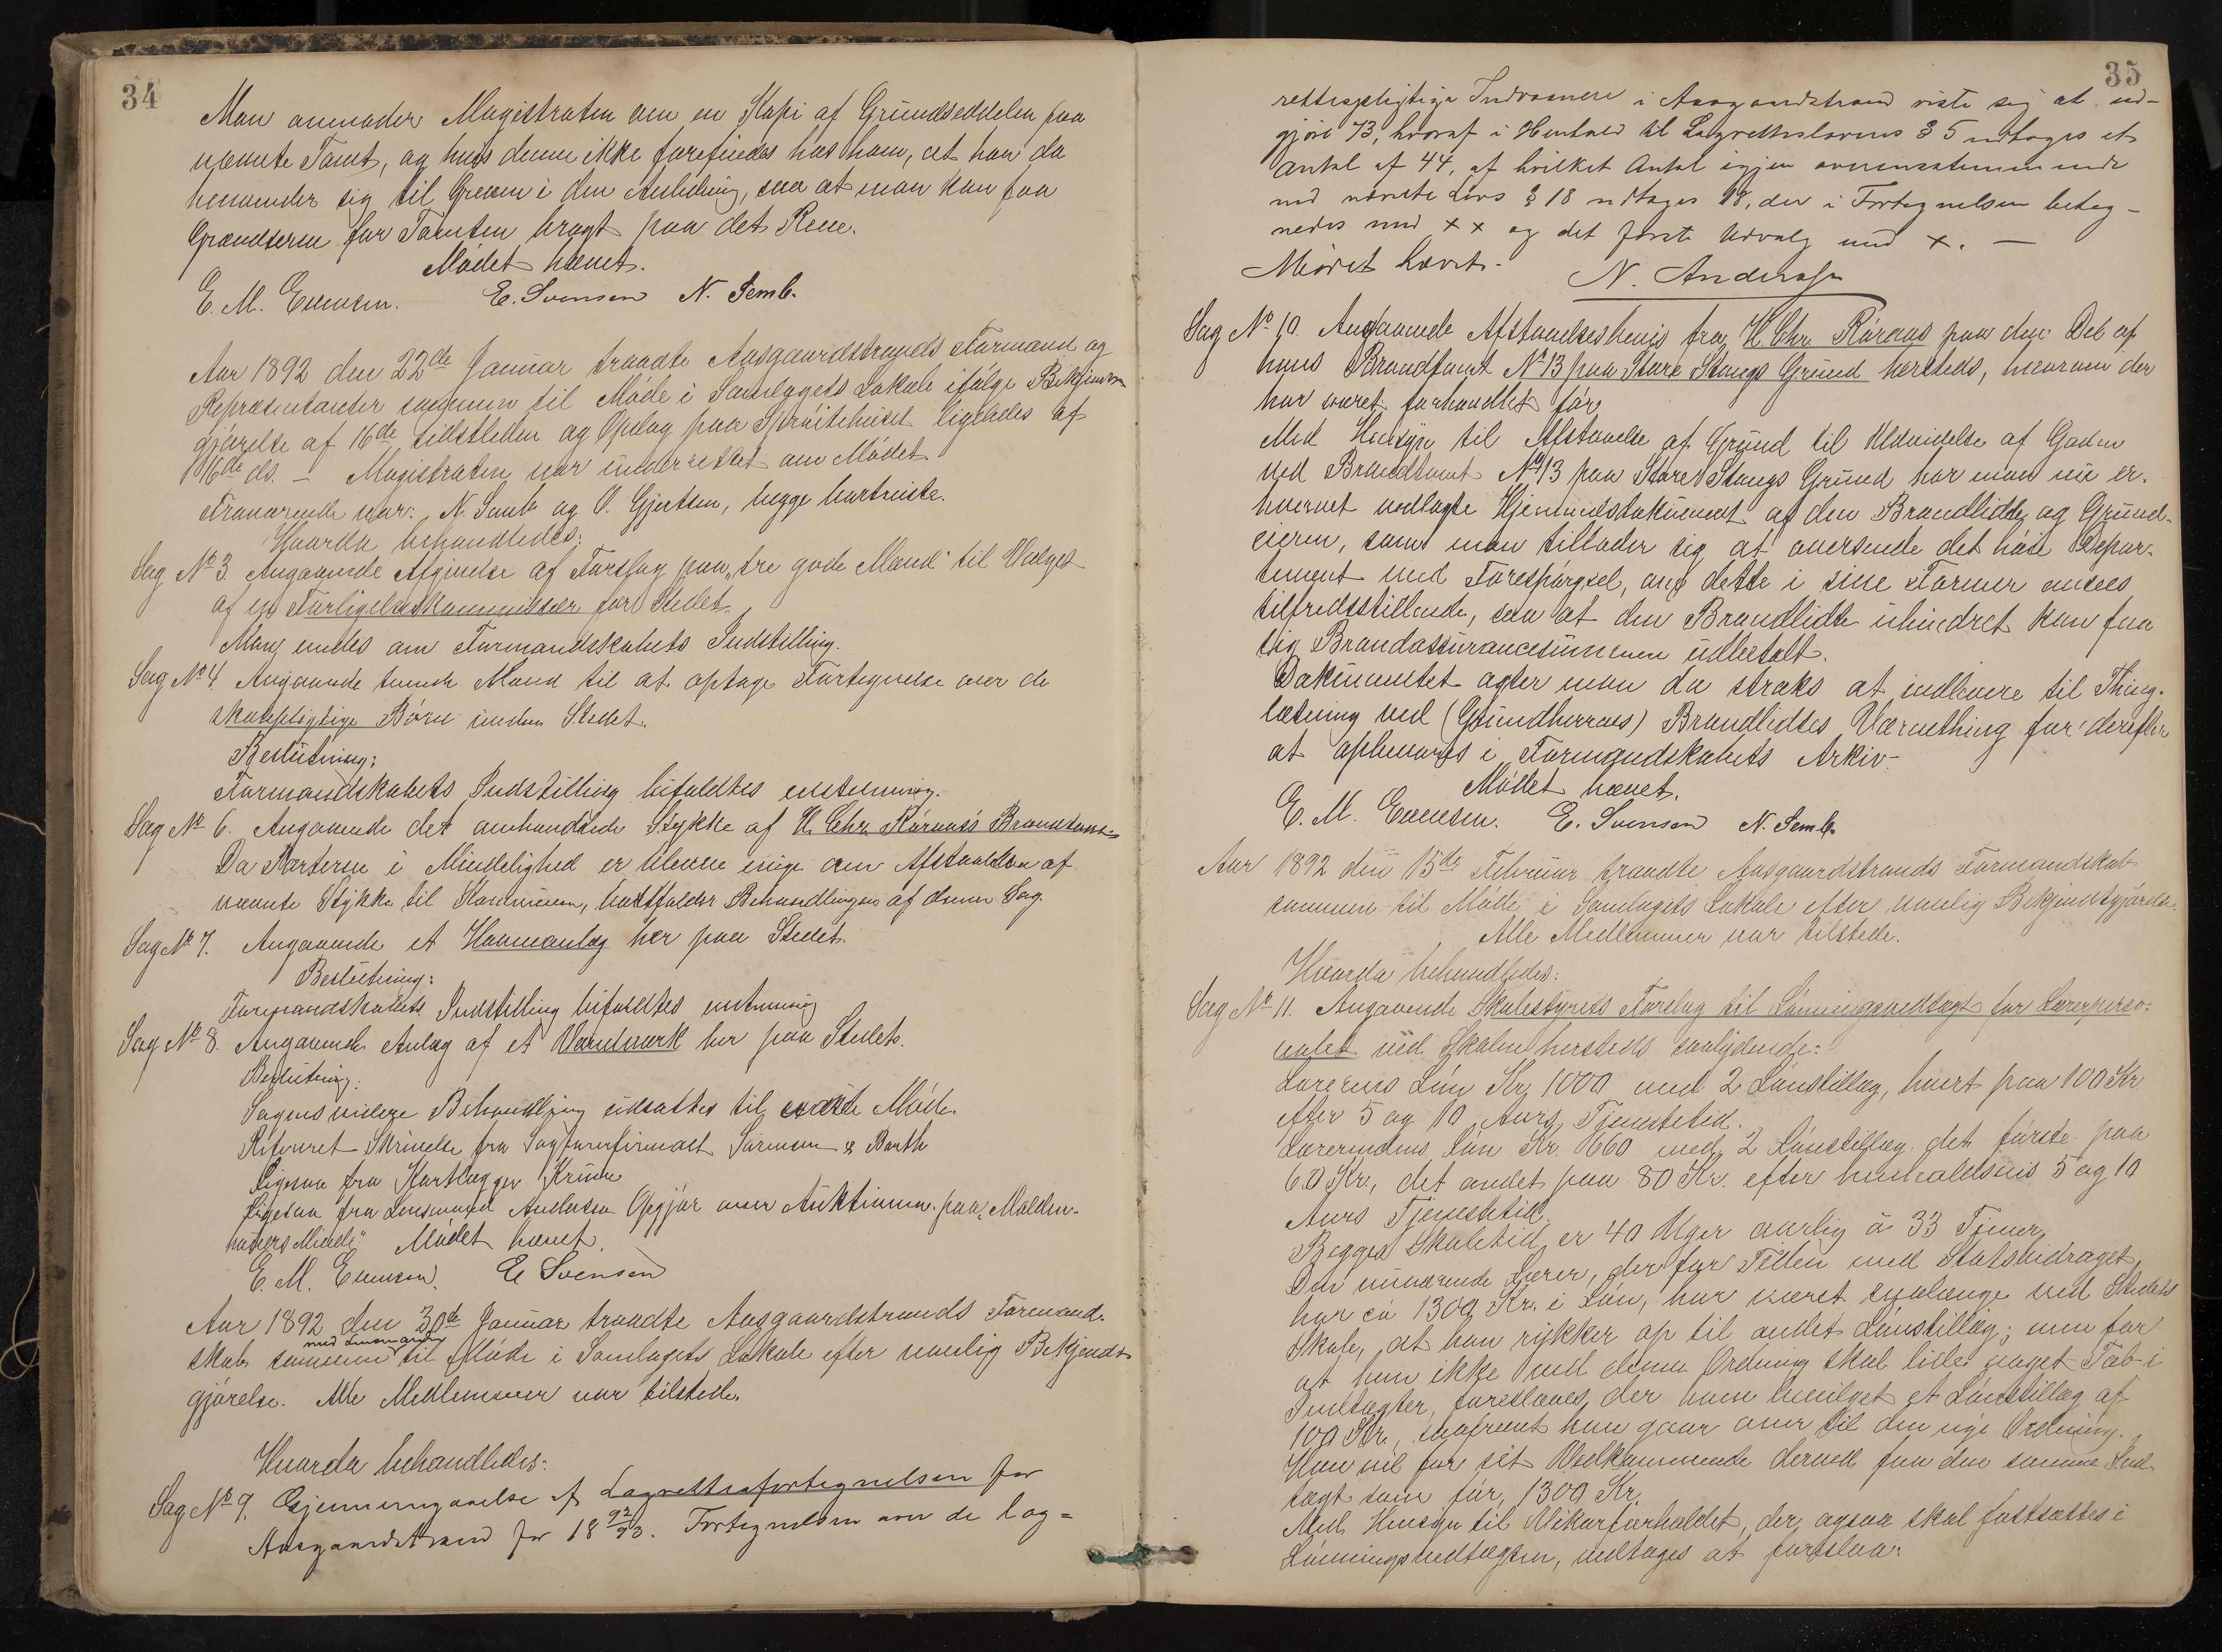 34
Man anmoder Magistraten om en Kopi af Grundseddelen paa
nævnte Tomt, og hvis denne ikke forefindes hos ham, at han da
henvender sig til Greven i den Anledning, saa at man kan faa
Grændserne for Tomten bragt paa det Rene.
Mødet hævet.
E. M. Evensen. E. Svensen N. Semb.
Aar 1892 den 22de Januar traadte Aasgaardstrands Formænd og
Repræsentanter sammen til Møde i Samlagets Lokale ifølge Bekjendt-
gjørelse af 16de sidstleden og Opslag paa Sprøitehuset ligeledes af
16de ds. – Magistraten var underrettet om Mødet.
Fraværende var: N. Semb og O. Gjertsen, begge bortreiste.
Hvorda behandledes:
Sag No 3. Angaaende Afgivelse af Forslag paa „tre gode Mænd" til Valget
af en Forligelseskommissær for Stedet.
Man enedes om Formandskabets Indstilling.
Sag No 4. Angaaende tvende Mænd til at optage Fortegnelse over de
skolepligtige Børn inden Stedet.
Beslutning:
Formandskabets Indstilling bifaldtes enstemmig.
Sag No 6. Angaaende det omhandlede Stykke af H. Chr. Røraas's Brandtomt
Da Parterne i Mindelighed er blevne enige om Afstaaelsen af
nævnte Stykke til Kommunen, bortfalder Behandlingen af denne Sag.
Sag No 7. Angaaende et Havneanlæg her paa Stedet.
Beslutning:
Formandskabets Indstilling bifaldtes enstemmig
Sag No 8. Angaaende Anlæg af et Vandverk her paa Stedet.
Beslutning:
Sagens videre Behandling udsættes til næste Møde.
Refereret Skrivelse fra Sagførerfirmaet Sørensen & Barth
Ligesaa fra Kartlægger Krum
Ligesaa fra Lensmand Andersen Opgjør over Auktionen paa „Molden-
havers Minde". Mødet hævet.
E. M. Evensen. E Svensen
Aar 1892 den 30te Januar traadte Aasgaardstrands Formand-
med Lensmanden
skab sammen til Møde i Samlagets Lokale efter vanlig Bekjendt-
gjørelse. Alle Medlemmer var tilstede.
Hvorda behandledes:
Sag No 9. Gjennemgaaelse af Lagrettesfortegnelsen for
Aasgaardstrand for 18 92/93. Fortegnelsen over de lag=
35
rettespligtige Indvaanere i Aasgaardstrand viste sig at ud-
gjøre 73, hvoraf i Henhold til Lagretteslovens § 5 udtoges et
Antal af 44, af hvilket Antal igjen overensstemmende
med nævnte Lovs § 18 udtages 18, der i Fortegnelsen beteg-
nedes med x x og det første Udvalg med x. —
Mødet hævet. N. Andersen
Sag No 10. Angaaende Afstaaelsesbevis fra H. Chr. Røraas paa den Del af
hans Brandtomt No 13 paa Store Stangs Grund hersteds, hvorom der
har været forhandlet før.
Med Hensyn til Afstaaelse af Grund til Udvidelse af Gaden
ved Brandtomt No 13 paa Store Stangs Grund har man nu er-
hvervet vedlagte Hjemmelsdokument af den Brandlidte og Grund-
eieren, som man tillader sig at oversende det høie Depar-
tement med Forespørgsel, om dette i sine Former ansees
tilfredsstillende, saa at den Brandlidte uhindret kan faa
sig Brandassurancesummen udbetalt.
Dokumentet agter man da straks at indlevere til Thing-
læsning ved (Grundherrens) Brandlidtes Værnething for derefter
at opbevares i Formandskabets Arkiv-
Mødet hævet.
E. M. Evensen. E. Svensen N. Semb.
Aar 1892 den 15de Februar traadte Aasgaardstrands Formandskab
sammen til Møde i Samlagets Lokale efter vanlig Bekjendtgjørelse.
Alle Medlemmer var tilstede.
Hvorda behandledes:
Sag No 11. Angaaende Skolestyrets Forslag til Lønningsvedtægt for Lærerperso-
nalet ved Skolen hersteds saalydende:
Lærerens Løn Kr. 1000 med 2 Lønstillæg, hvert paa 100 Kr.
efter 5 og 10 Aars Tjenestetid.
Lærerindens Løn Kr. 660 med 2 Lønstillæg, det første paa
60 Kr., det andet paa 80 Kr. efter henholdsvis 5 og 10
Aars Tjenestetid.
Begges Skoletid er 40 Uger aarlig à 33 Timer.
Den nuværende Lærer, der for Tiden med Statsbidraget,
har ca 1300 Kr. i Løn, har været saalænge ved Stedets
Skole, at han rykker op til andet Lønstillæg; men for
at han ikke ved denne Ordning skal lide noget Tab i
Indtægter, foreslaaes der ham bevilget et Lønstillæg af
100 Kr., saafremt han gaar over til den nye Ordning.
Han vil for sit Vedkommende derved faa den samme Ind-
tægt som før, 1300 Kr.
Med Hensyn til Vikarforholdet, der ogsaa skal fastsættes i
Lønningsvedtægten, vedtages at foreslaa: